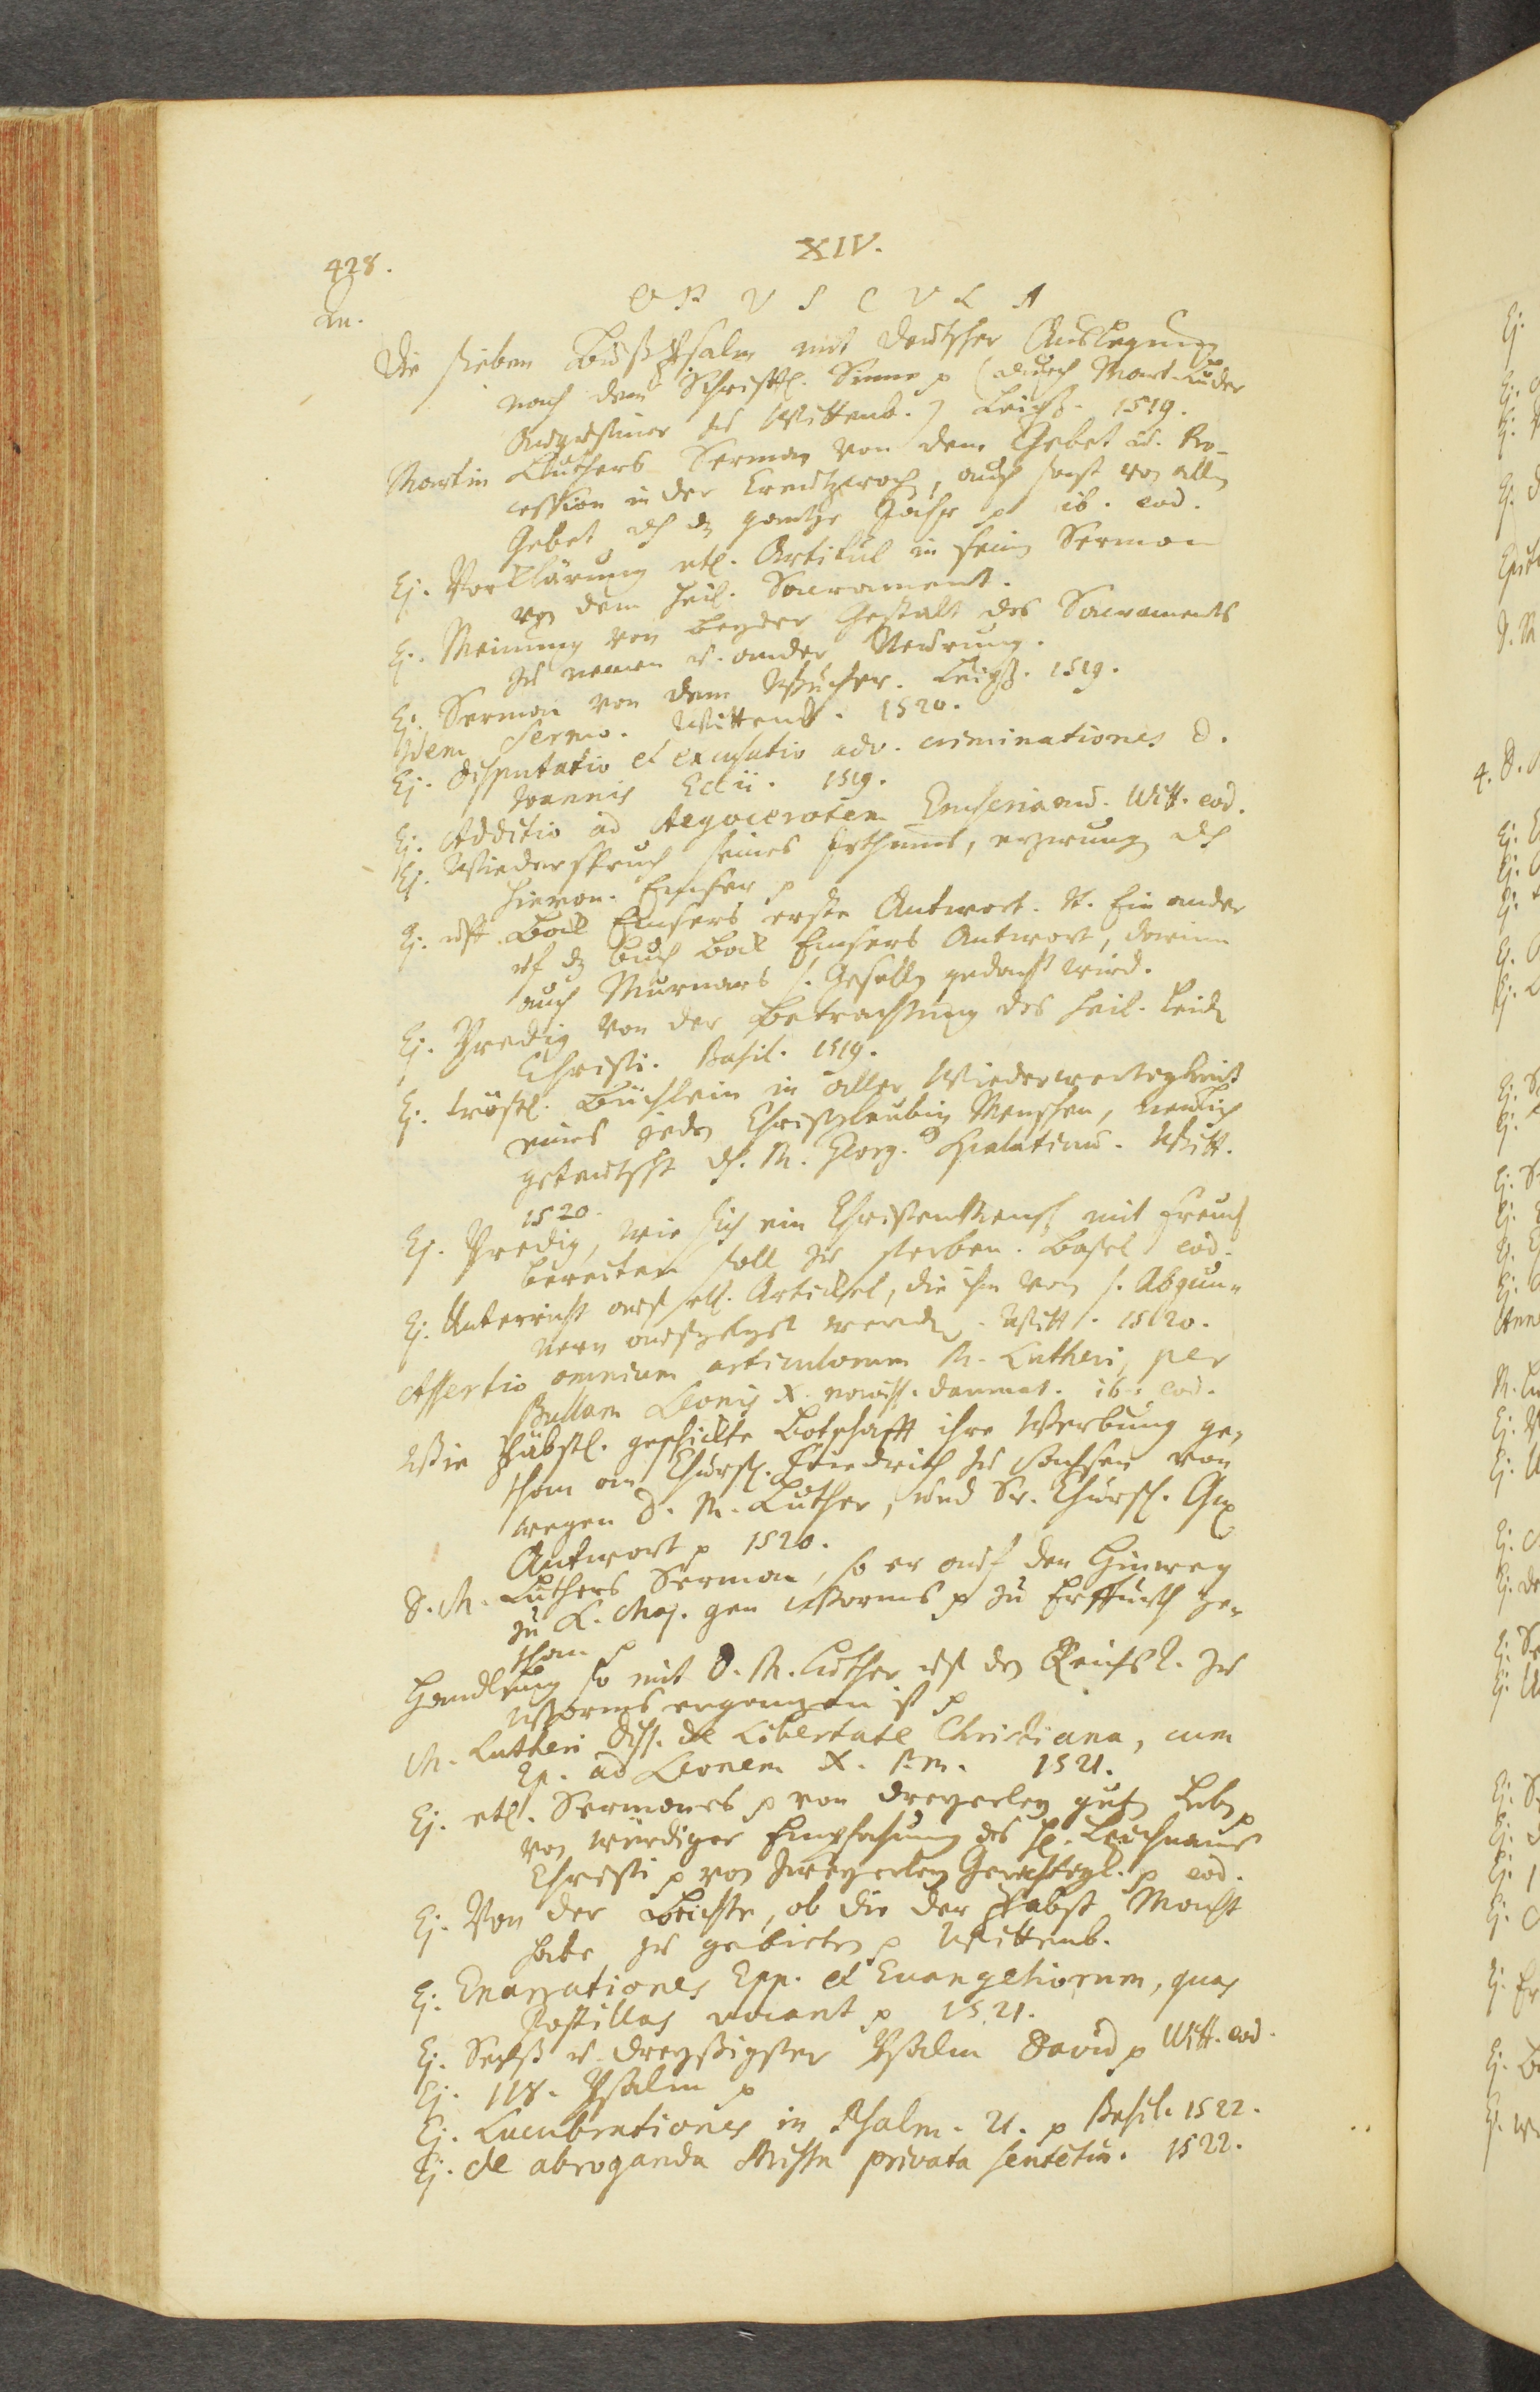 XIV.
428.
OPUSCULA
Die sieben Bußpsalm mit deutscher Auslegung
nach dem Schrifftl. Sinne p (durch Mart. Luder
Augustiner zu Wittenb.) Leipz. 1519.
Martin Luthers Sermon von dem Gebet u. Pro-
cession in der Creutzwoch, auch sonst von allen
Gebet dh dz gantze Jahr p ib. eod.
Ej. Vorklärung etl. Artikul in sein Sermon
von dem heil. Sacrament.
Ej. Meinung von beyder Gestalt des Sacraments
zu nemen u. ander Neurung.
Ej. Sermon von dem Wucher. Leipz. 1519.
Idem Sermo. Wittenb. 1520.
Ej. Disputatio et excusatio adv. criminationes D.
Joannis Eckii. 1519.
Ej. Additio ad Aegocerotem Emserianu. Witt. eod.
Ej. Wiederspruch seines Irthums, erzwung dh
Hieron. Emser p
Ej. uff Bock Emsers erste Antwort. It. Ein ander
uf dz Buch Bock Emsers Antwort, darinn
auch Murnars s. Gesellen gedacht wird.
Ej. Predig von der Betrachtung des heil. Leiden
Christi. Basil. 1519.
Ej. tröstl. Büchlein in aller Wiederwertigkeit
eines jeden Christglaubig Menschen, neulich
geteutscht dh. M. Georg. Spalatinu. Witt.
1520.
Ej. Predig, wie sich ein Christen Mensch mit Freud
bereiten soll zu sterben. Basel eod.
Ej. Unterricht auf etl. Artickel, die ihm von s. Abgün-
nern aufgelegt werden. Witt. 1520.
Assertio omnium articulorum M. Lutheri, per
Bullam Leonis X. noviss. damnat. ib. eod.
Wie Päbstl. geschickte Botschafft ihre Werbung ge-
than an Churf. Friedrich zu Sachsen von
wegen D. M. Luther, und Sr. Churf. Gn
Antwort p 1520.
D. M. Luthers Sermon, so er auf den Hinweg
zu K. Maj. gen Worms p zu Erffurth ge-
than p
Handlung so mit D. M. Luther uf den Reichst. zu
Worms ergangen ist p
M. Lutheri Diss. de Libertate Christiana, cum
Ep. ad Leonem X. P. M. 1521.
Ej. etl. Sermones p von dreyerley guten Leben p
von würdiger Empfahung des h. Leichnams
Christi p von zweyerley Gerechtigk. p eod.
Ej. Von der Beichte, ob die der Pabst Macht
habe zu gebieten p Wittenb.
Ej. Enarrationes Epp. et Euangeliorum, quas
Postillas vocant p 1521.
Ej. Sechß u. dreyßigster Psalm David p Witt. eod.
Ej. 118. Psalm p
Ej. Lucubrationes in Psalm. 21. p Basil. 1522.
Ej. de abroganda Missa privata sententia. 1522.